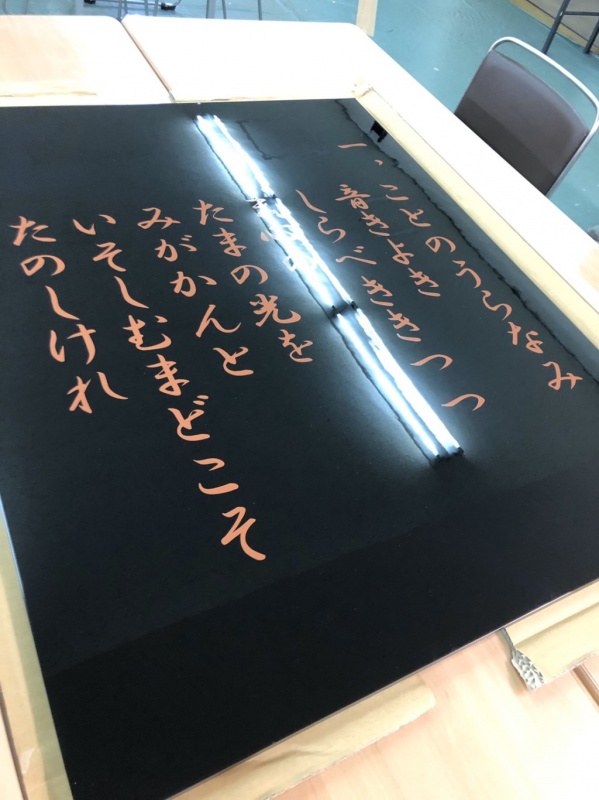 一、ことのうらなみ
音きよき
しらべききつつ
たまの光を
みがかんと
いそしむまどこそ
たのしけれ